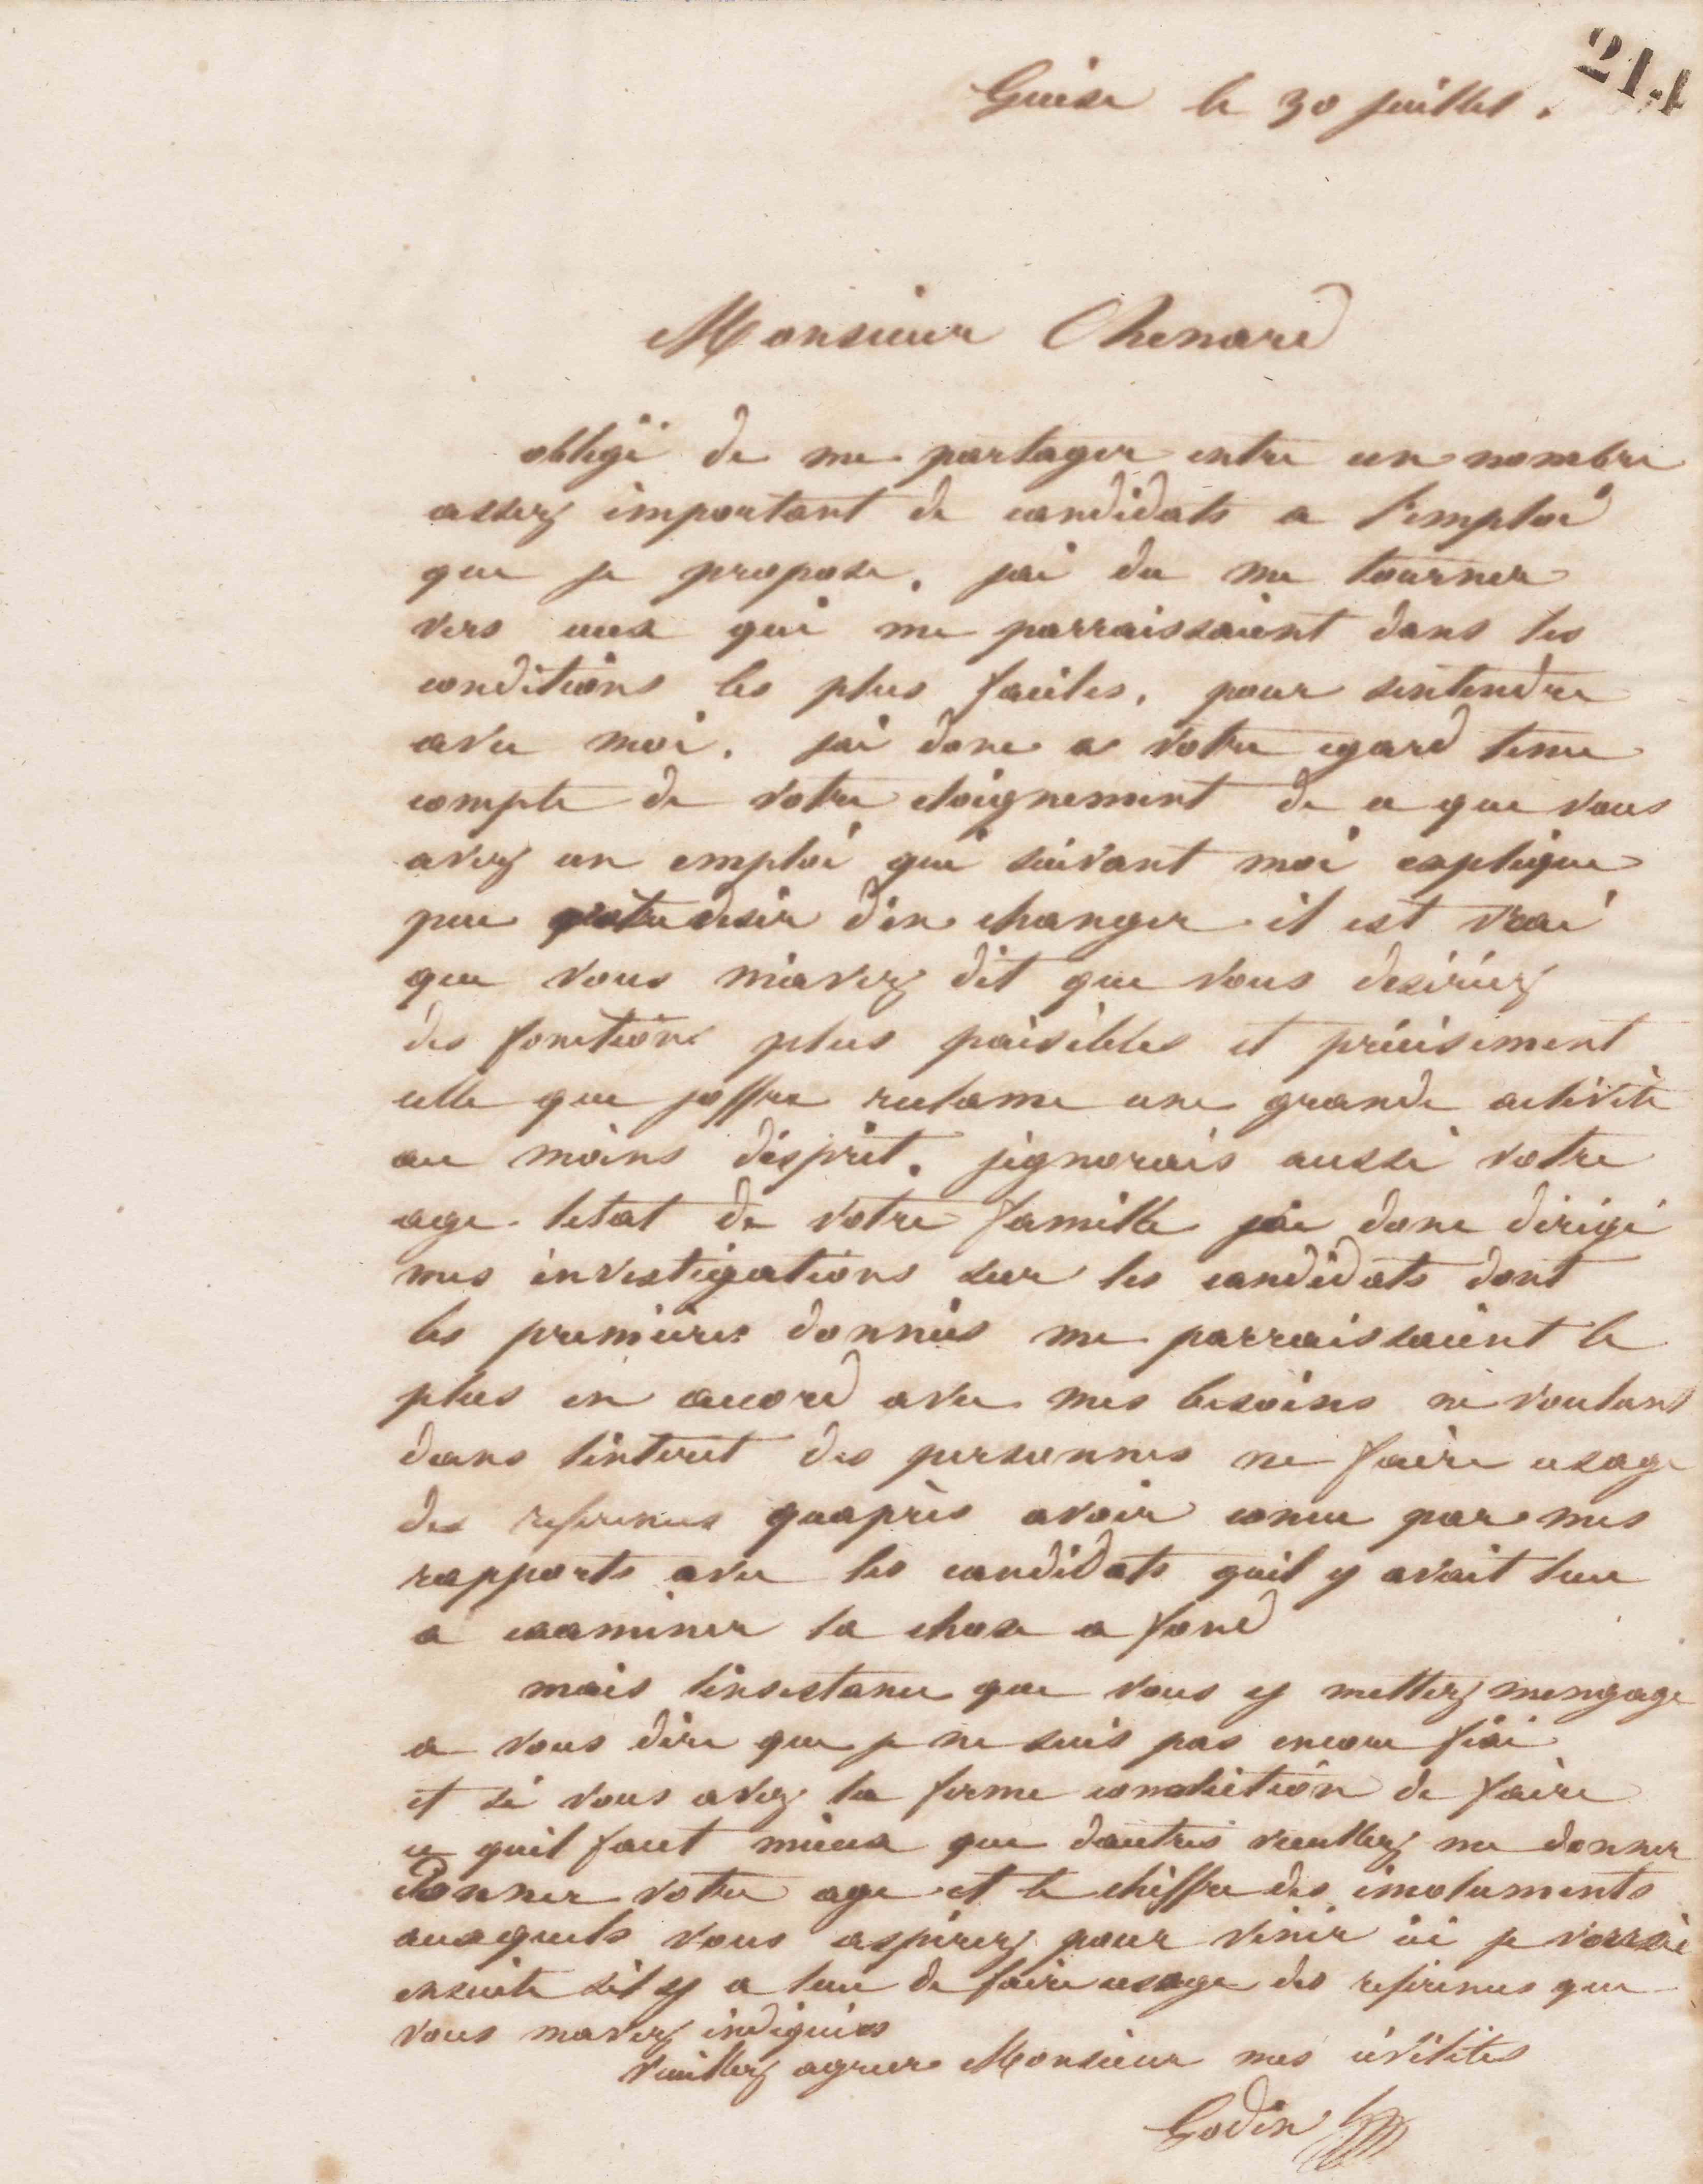 214
Guise le 30 juillet.
Monsieur Chenard
obligé de me partager entre un nombre
assez important de candidats a l'emploi
que je propose, jai du me tourner
vers ceux qui me parraissaient dans les
conditions les plus faciles, pour sentendre
avec moi. jai donc a votre egard tenu
compte de votre eloignement de ce que vous
avez un emploi qui suivant moi explique
peu votre desir d'en changer il est vrai
que vous m'avez dit que vous desiriez
des fonctions plus paisibles et précisément
celle que joffre reclame une grande activité
au moins d'esprit. jignorais aussi votre
age letat de votre famille jai donc dirigé
mes investigations sur les candidats dont
les premières donnés me parraissaient le
plus en accord avec mes besoins ne voulant
dans linteret des personnes ne faire usage
des references quaprès avoir connu par mes
rapports avec les candidats quil y avait lieu
a examiner la chose a fond
mais linsistance que vous y mettez mengage
a vous dire que je ne suis pas encore fixé
et si vous avez la ferme conviction de faire
ce quil faut mieux que dautres veuillez me donner
donner votre age et le chiffre des émoluments
auxquels vous aspirez pour venir ici je verrai
ensuite sil y a lieu de faire usage des references que
vous mavez indiquées
Veuillez agreer Monsieur mes civilités
Godin